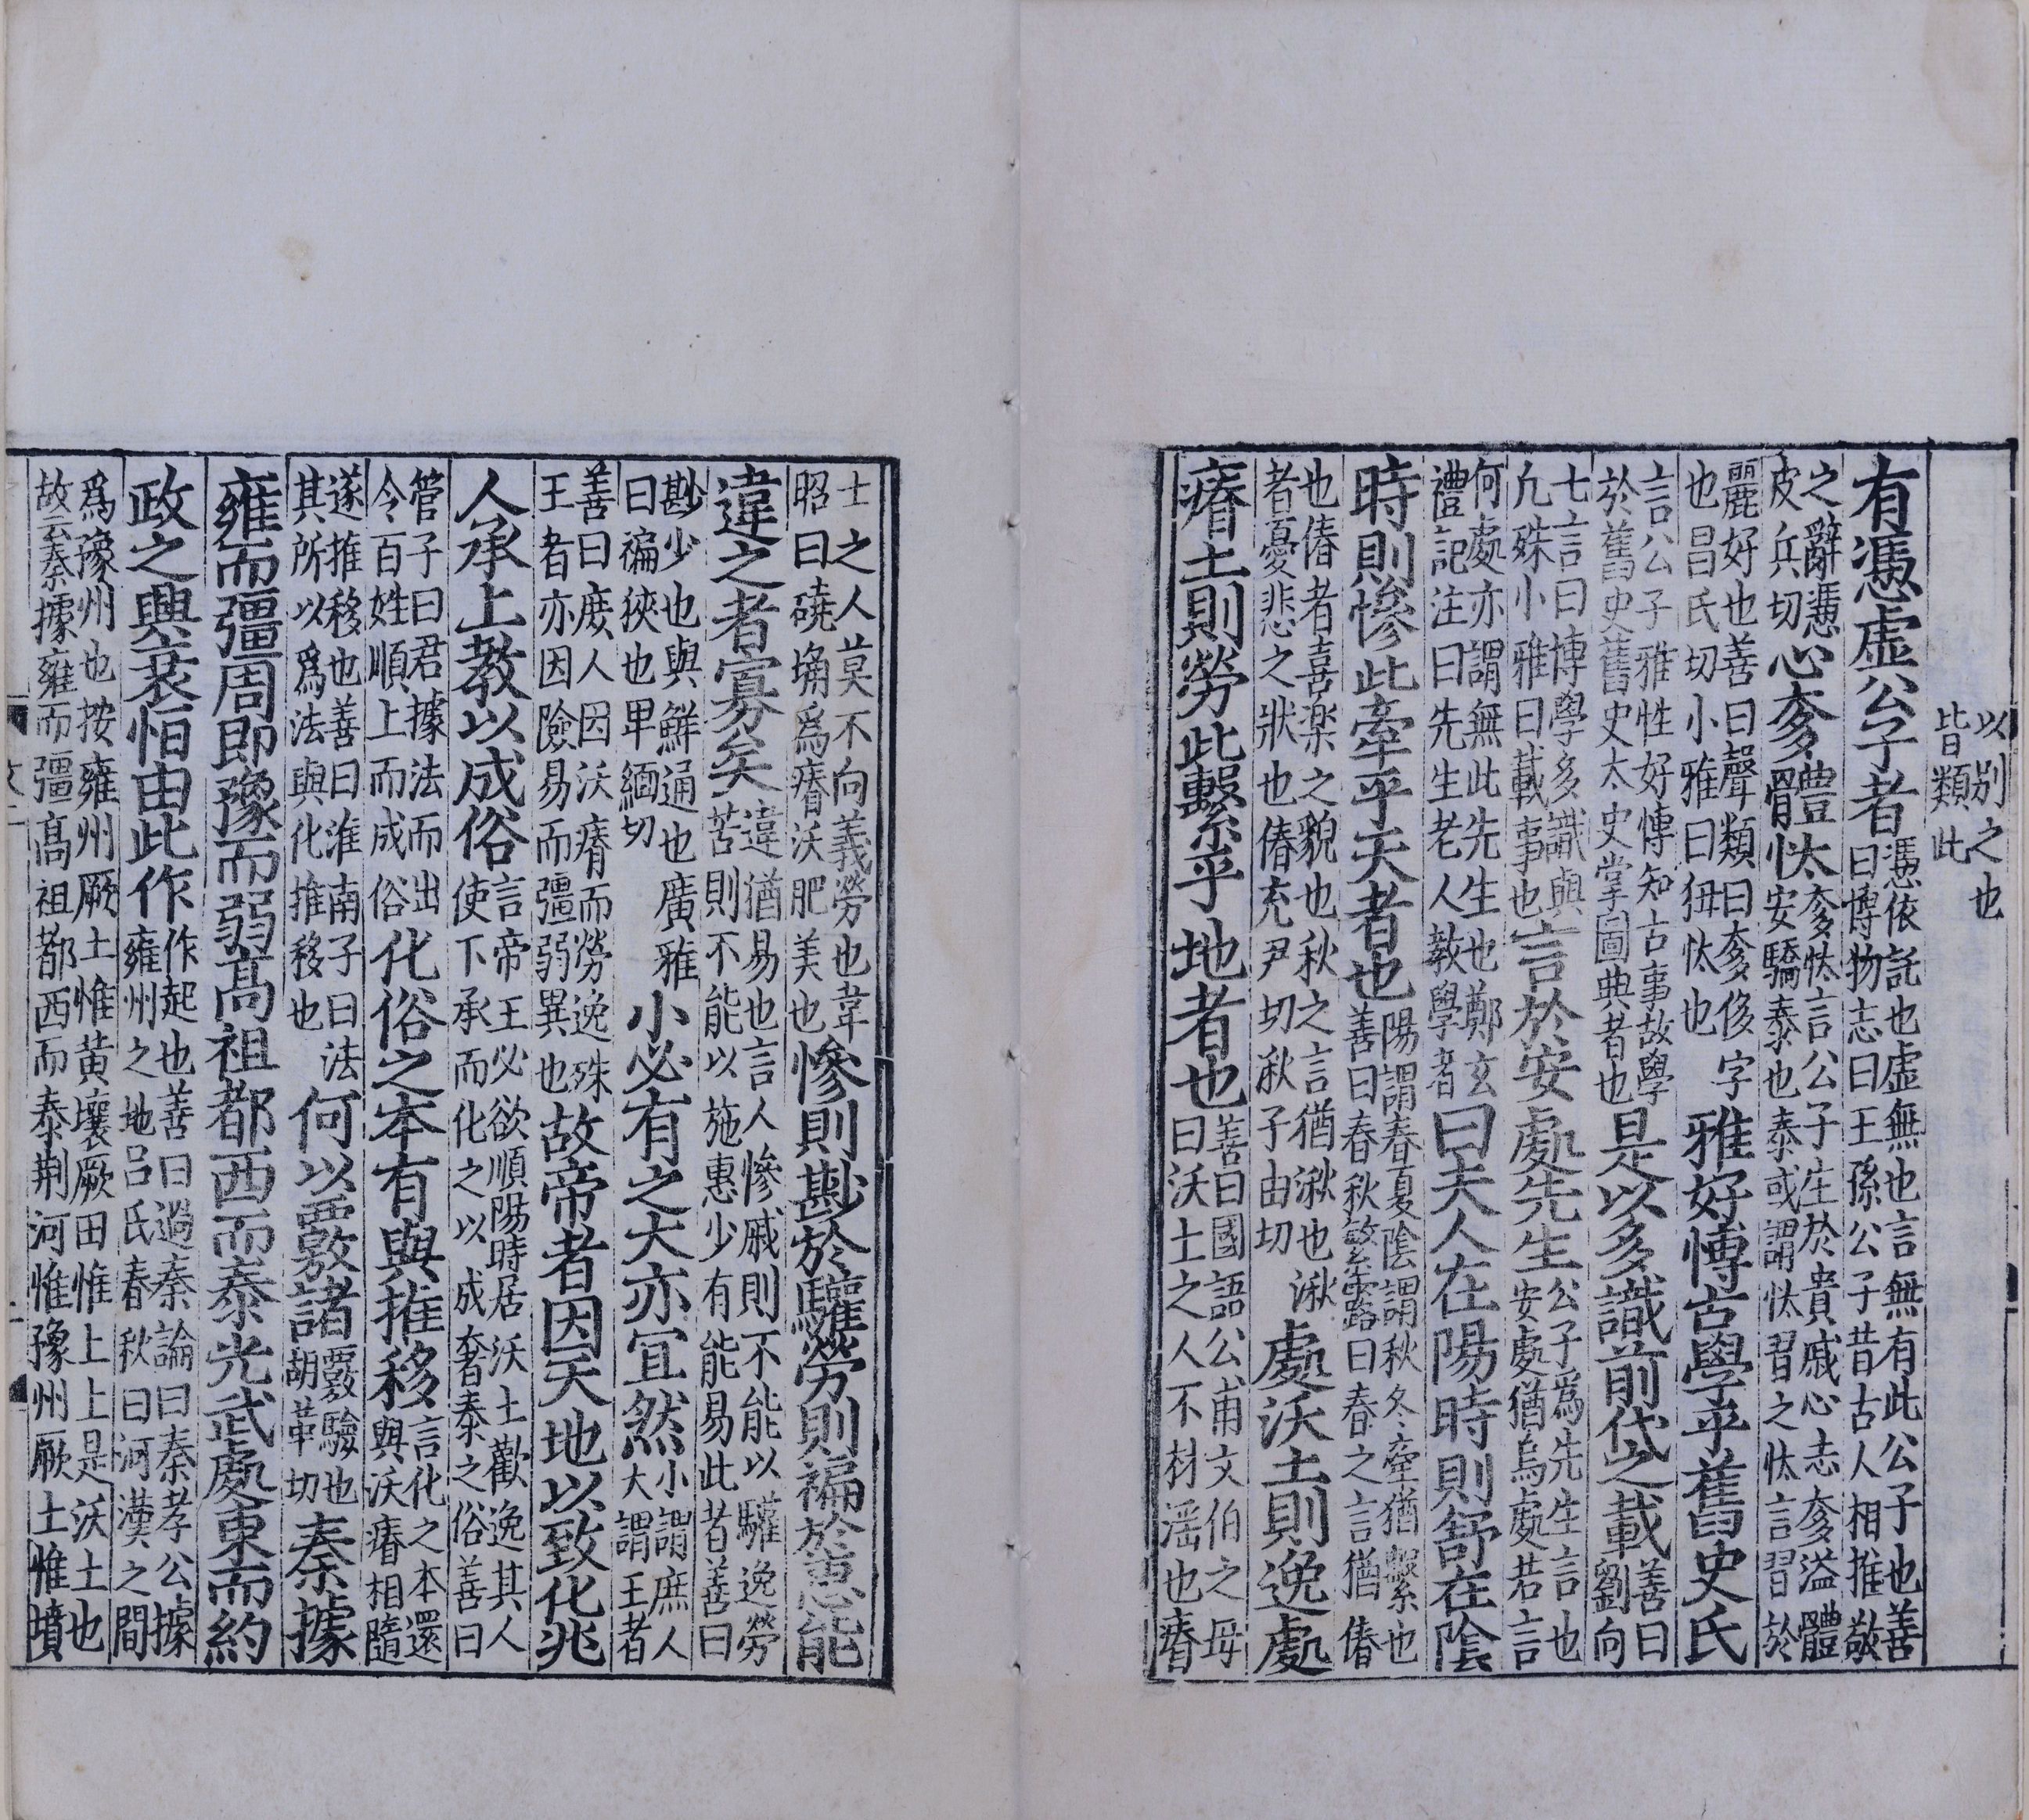 以别之也
皆類此
有憑虛公子者憑依託也虛無也言無有此公子也善
曰博物志曰王孫公子昔古人相推敬
之辭憑
皮兵切心奓體忲奓忲言公子生於貴戚心志奓溢體
安驕泰也泰或謂忲習之忲言習於
麗好也善曰聲類曰奓侈字
也昌氏切小雅曰狃忲也雅好博古學乎舊史氏
言公子雅性好博知古事故學
於舊史舊史太史掌圖典者也是以多識前代之載善曰
劉向
七言曰博學多識與
凢殊小雅曰載事也言於安處先生公子爲先生言也
安處猶烏處若言
何處亦謂無此先生也鄭玄
禮記注曰先生老人教學者曰夫人在陽時則舒在陰
時則慘此牽乎天者也陽謂春夏陰謂秋冬牽猶繫也
善曰春秋繁露曰春之言猶偆
也偆者喜楽之貌也秋之言猶湫也湫
者憂悲之狀也偆充尹切湫子由切處沃土則逸處
瘠土則勞此繫乎地者也善曰國語公甫文伯之毋
曰沃土之人不材滛也瘠
士之人莫不向義勞也韋
昭曰磽埆爲瘠沃肥美也慘則尠於驩勞則褊於惠能
違之者寡矣違猶易也言人慘戚則不能以驩逸勞
苦則不能以施惠少有能易此者善曰
尠少也與鮮通也廣雅
曰褊狹也卑緬切小必有之大亦冝然小謂庶人
大謂王者
善曰庶人因沃瘠而勞逸殊
王者亦因險易而彊弱異也故帝者因天地以致化兆
人承上教以成俗言帝王必欲順陽時居沃土歡逸其人
使下承而化之以成奢泰之俗善曰
管子曰君據法而出
令百姓順上而成俗化俗之本有與推移言化之本還
與沃瘠相隨
遂推移也善曰淮南子曰法
其所以爲法與化推移也何以覈諸覈驗也
胡革切秦據
雍而彊周即豫而弱髙祖都西而泰光武處東而約
政之興衰恒由此作作起也善曰過秦論曰秦孝公據
雍州之地吕氏春秋曰河漢之間
爲豫州也按雍州厥土惟黄壤厥田惟上上是沃土也
故云秦據雍而彊髙祖都西而泰荆河惟豫州厥土惟墳